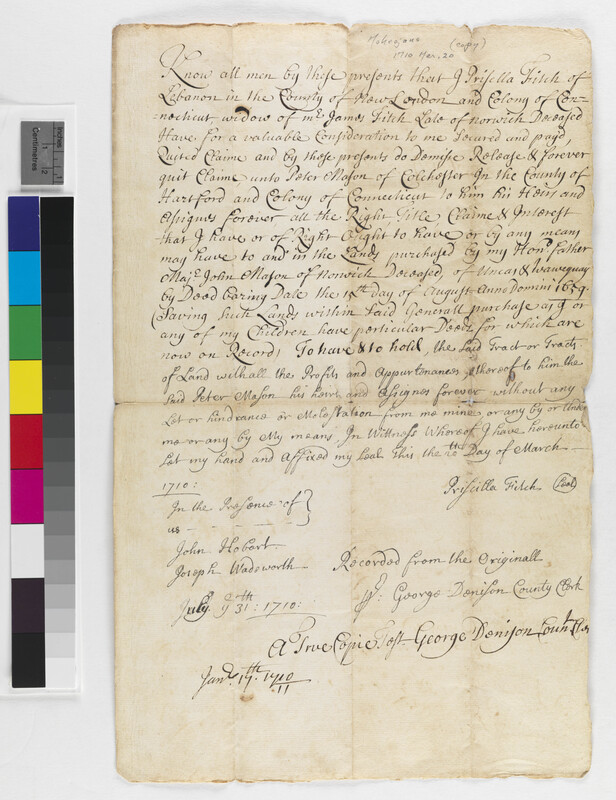 Mohegans (copy)
1710 Mar. 20
Know all men by these presents that I Prisella Fitch of
Lebanon in the County of New London and Colony of Con=
necticut, widow of mr. James Fitch Late of Norwich Deceased
Have for a valuable Consideration to me secured and payd,
Quited Claime and by these presents do Demise Release & forever
quit Claime unto Peter Mason of Colchester In the County of
Hartford and Colony of Connecticut to him his Heirs and
Assignes forever all the Right Title Claime & Interest
that I have or of Right ought to have or by any means
may have to and in the Lands purchased by my Hond. father
Majr. John Mason of Norwich Deceased, of Uncas & Wawequay
by Deed Baring Date the 15th day of August Anno Domini 1659.
(Saving such Lands within said Generall purchase as I or
any of my Children have particular Deeds for which are
now on Record) To have & to hold, the said Tract or Tracts
of Land with all the Profits and Appurtenances thereof to him the
said Peter Mason his heirs and Assignes forever without any
Let or hindrance or Molestation from me mine or any by or Under
me or any by My means. In Wittness Whereof I have hereunto
set my hand and Affixed my Seal this the 20th Day of March
1710:
Priscilla Fitch (Seal)
In the Presence of
us
John Hobart
Joseph Wadsworth
Recorded from the Originall
pr: George Denison County Clerk
July ye 31th: 1710:
A True Copie Test. George Denison County Clerk
Janr. 17th. 1710/11
Inches
1
Centimetres
2